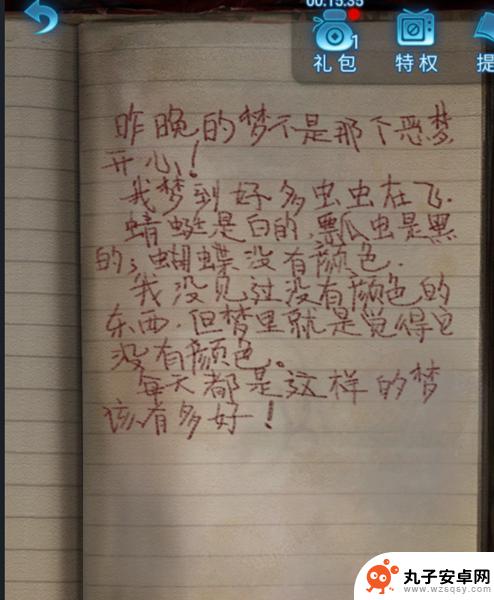 00:15:35
1
礼包
特权
提
昨晚的梦不是那个恶梦
开心！
我梦到好多虫虫在飞.
蜻蜓是白的，瓢虫是黑
的；蝴蝶没有颜色.
我没见过没有颜色的
东西.但梦里就是觉得它
没有颜色。
每天都是这样的梦
该有多好！
丸子安卓网
www.wzsqsy.com